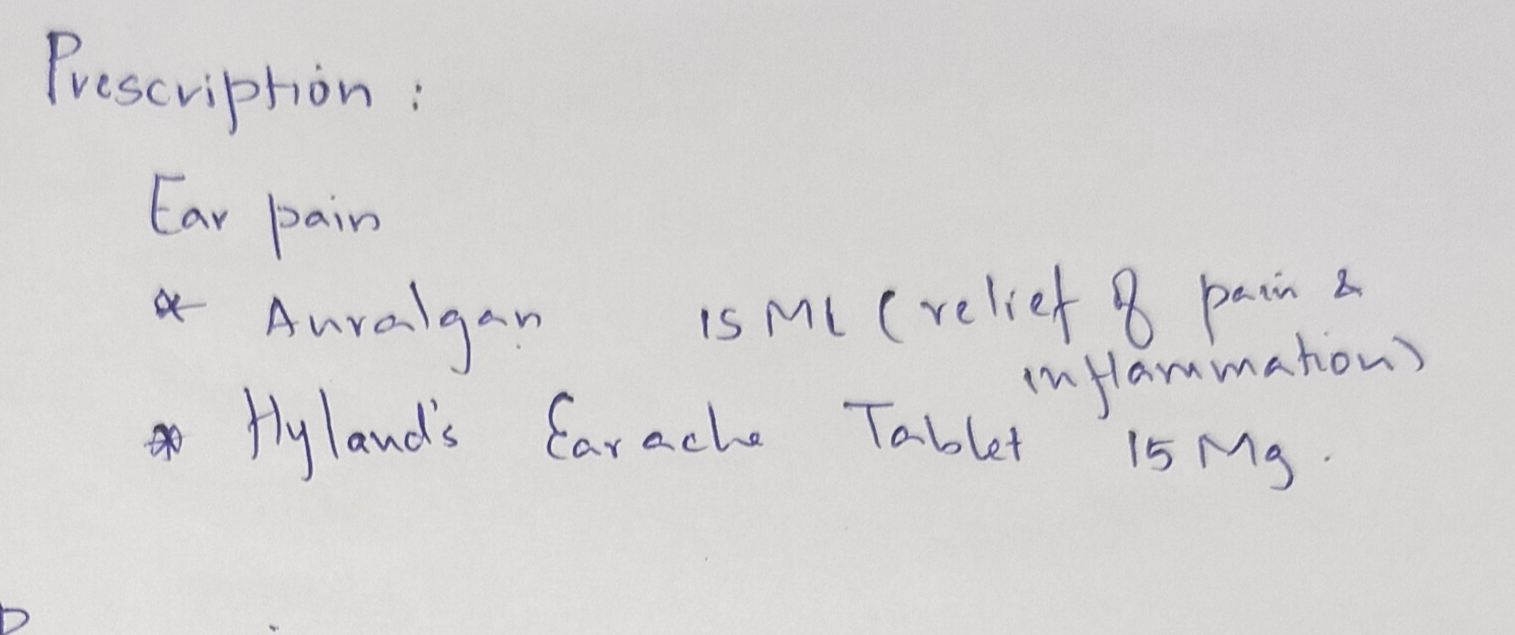 Prescription :
Ear pain
* Auralgan 15 ML (relief of pain &
inflammation)
* Hyland's Earache Tablet 15 Mg.